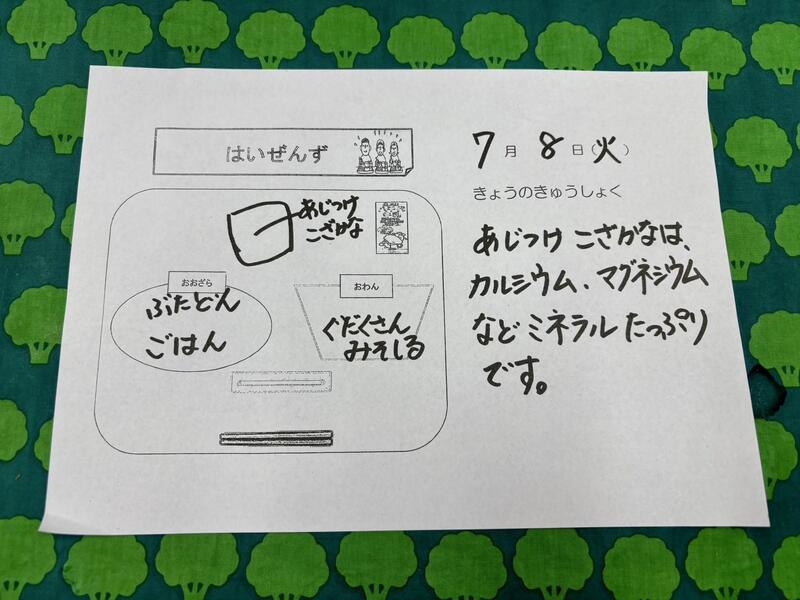 はいぜんず
あじつけ
こざかな
おおざら
ぶたどん
ごはん
おわん
ぐだくさん
みそしる
7月8日(火)
きょうのきゅうしょく
あじつけ こざかなは、
カルシウム、マグネシウム
など ミネラル たっぷり
です。